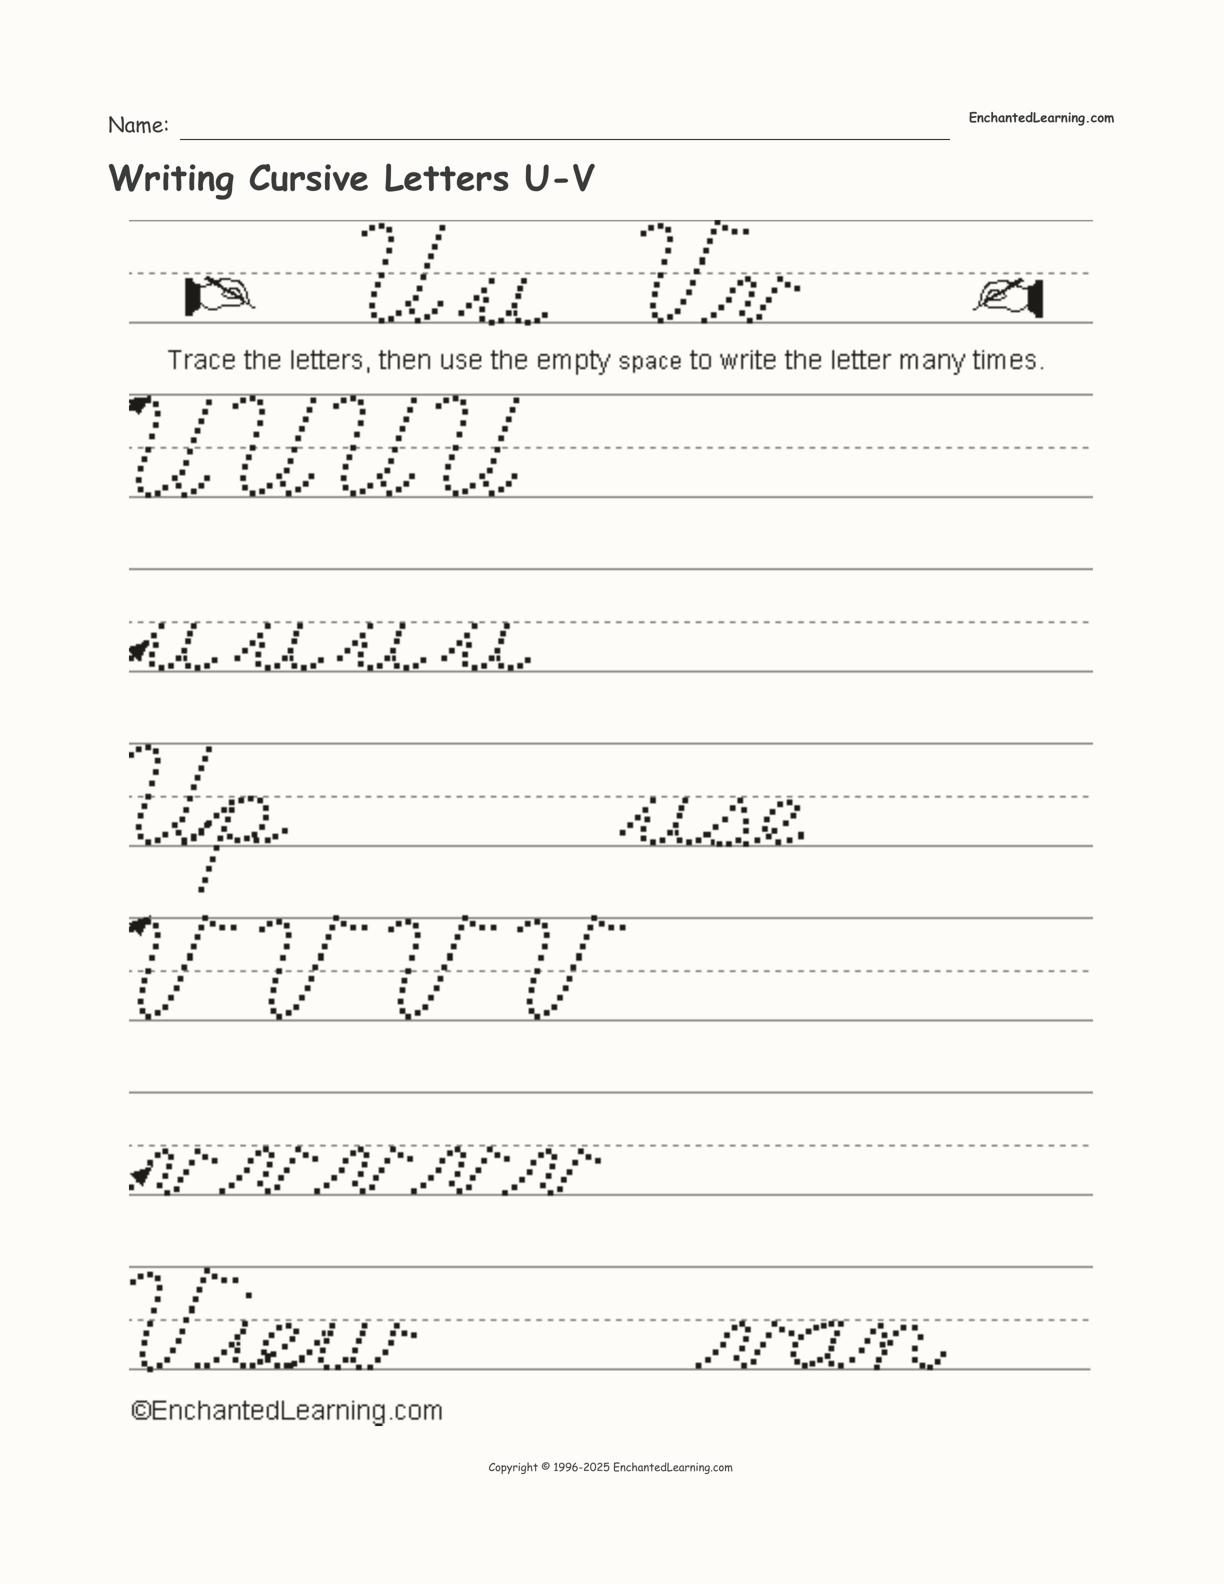 Name:
EnchantedLearning.com
Writing Cursive Letters U-V
U u V v
Trace the letters, then use the empty space to write the letter many times.
U U U U
u u u u
Up use
V V V V
v v v v v
View van
©EnchantedLearning.com
Copyright © 1996-2025 EnchantedLearning.com